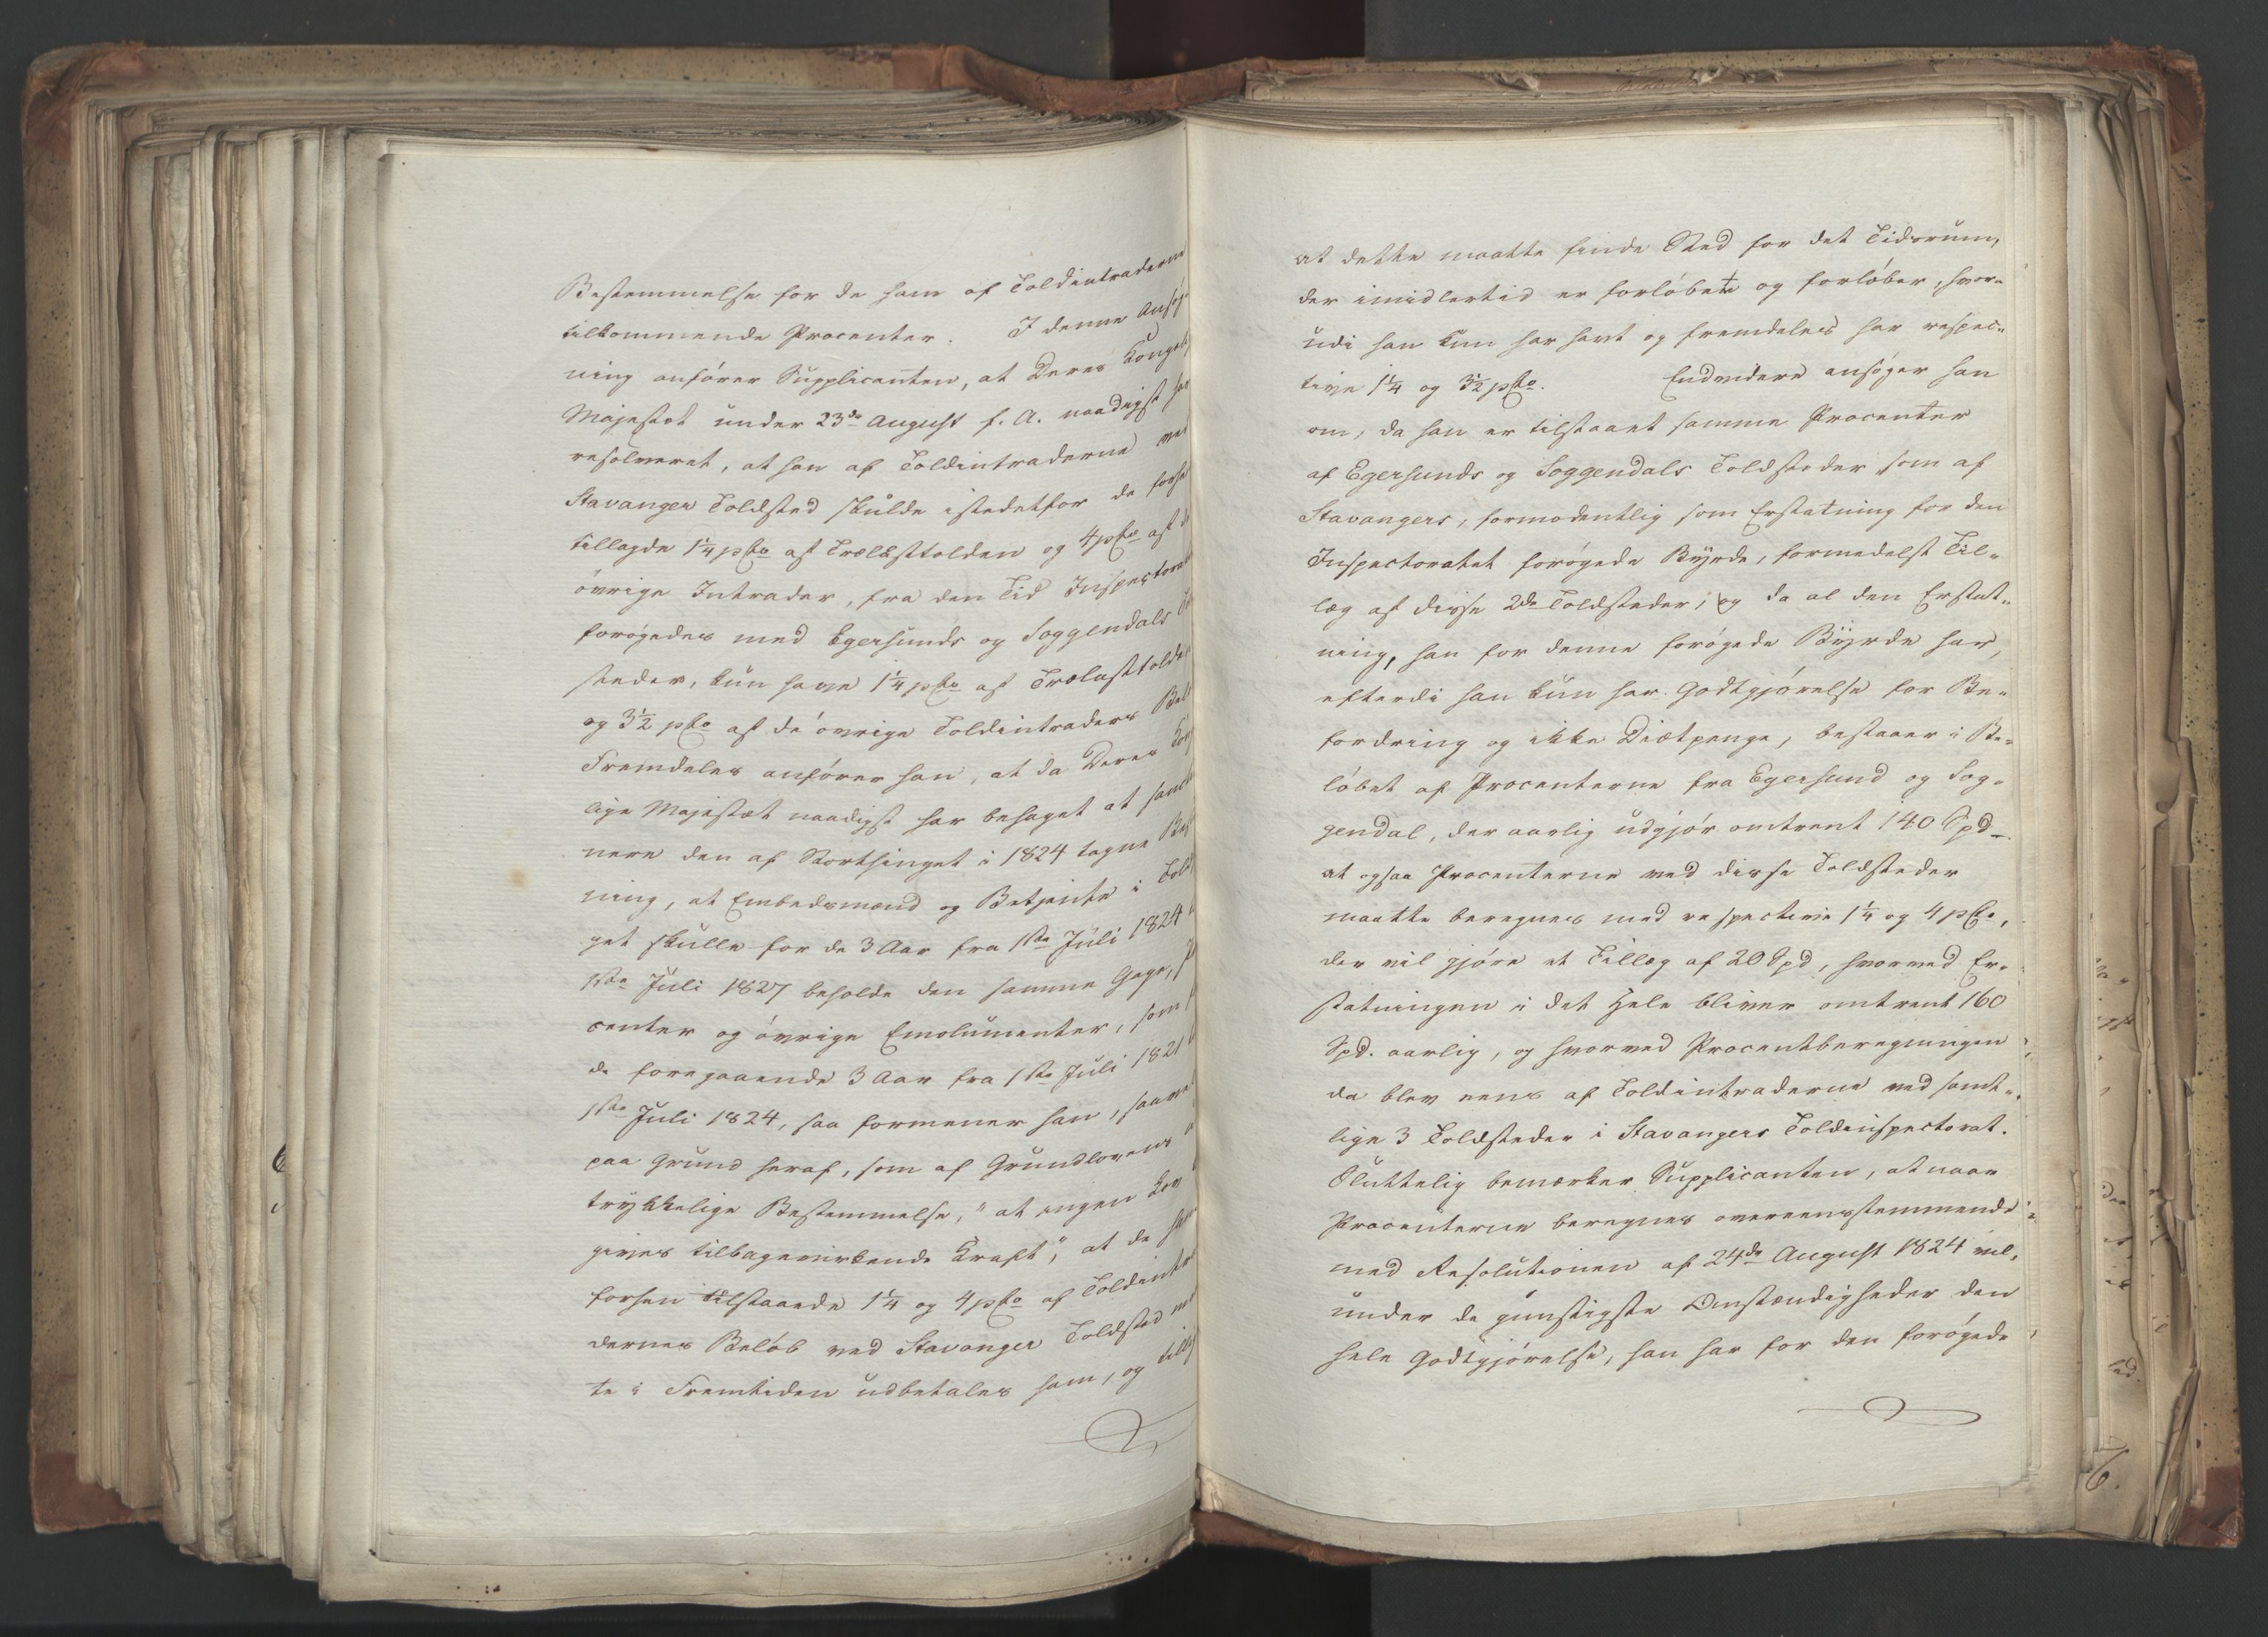 Bestemmelse for de ham af Toldintraderne
tilkommende Procenter. I denne Ansøg
ning anfører Supplicanten, at Deres Kongel
Majestæt under 23de August f. A. naadigst har
resolveret, at han af Toldintraderne ved
Stavanger Toldsted skulde istedetfor de forhe
tillagde 1 1/4 pCto af Trælasttolden og 4 pCto af de
øvrige Intrader, fra den Tid Inspectoratet
forøgedes med Egersunds og Soggendals To
steder, kun have 1 1/4 pCto af Trælasttolden
og 3 1/2 pCto af de øvrige Toldintraders Bel
Fremdeles anfører han, at da Deres Kong
lige Majestæt naadigst har behaget at sanct
nere den af Storthinget i 1824 tagne Besl
ning, at Embedsmænd og Betjente i Told
get skulle for de 3 Aar fra 1ste Juli 1824
1ste Juli 1827 beholde den samme Gage, P
center og øvrige Emolumenter, som
de foregaaende 3 Aar fra 1ste Juli 1821
1ste Juli 1824, saa formener han, saavel
paa Grund heraf, som af Grundlovens
trykkelige Bestemmelse, "at ingen Lov
gives tilbagevirkende Kraft", at de ham
forhen tilstaaede 1 1/4 og 4 pCto af Toldintr
dernes Beløb ved Stavanger Toldsted
te i Fremtiden udbetales ham, og till
at dette maatte finde Sted for det Tidsrum,
der imidlertid er forløbet og forløber, hvor-
udi han kun har havt og fremdeles har respec-
tive 1 1/4 og 3 1/2 pCto. Endvidere ansøger han
om, da han er tilstaaet samme Procenter
af Egersunds og Soggendals Toldsteder som af
Stavangers, formodentlig som Erstatning for den
Inspectoratet forøgede Byrde, formedelst Til-
læg af disse 2de Toldsteder, og da al den Erstat-
ning, han for denne forøgede Byrde har,
efterdi han kun har Godtgjørelse for Be-
fordring og ikke Diætpenge, bestaaer i Be-
løbet af Procenterne fra Egersund og Sog-
gendal, der aarlig udgjør omtrent 140 Spd -
at ogsaa Procenterne ved disse Toldsteder
maatte beregnes med respective 1 1/4 og 4 pCto,
der vil gjøre et Tillæg af 20 Spd, hvorved Er-
statningen i det Hele bliver omtrent 160
Spd. aarlig, og hvorved Procentberegningen
da blev eens af Toldintraderne ved samt-
lige 3 Toldsteder i Stavangers Toldinspectorat.
Sluttelig bemærker Supplicanten, at naar
Procenterne beregnes overeensstemmende
med Resolutionen af 24de August 1824 vil,
under de gunstigste Omstændigheder den
hele Godtgjørelse, han har for den forøgede